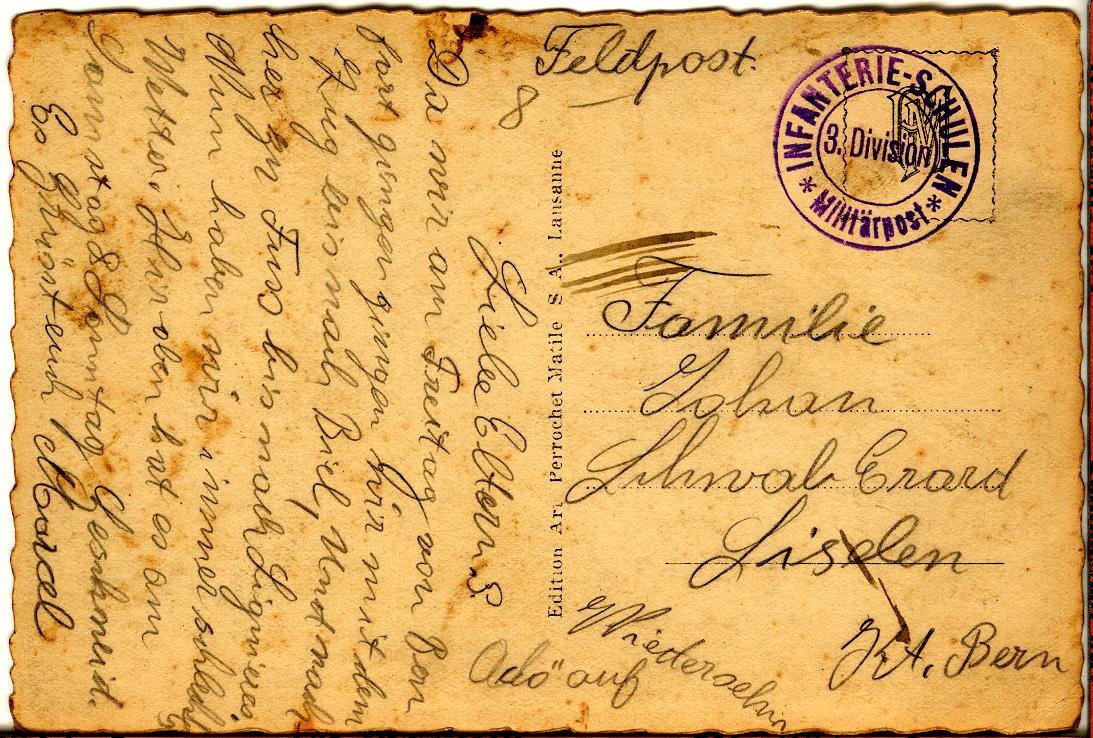 Feldpost.
8
INFANTERIE-SCHULEN
3. Division
* Militärpost *
Familie
Johan
Schwab Erard
Siselen
Kt. Bern
Edition Art Perrochet Matile S A., Lausanne
Liebe Eltern
Da wir am Freitag von Bern
fort gingen gingen wir mit dem
Zug bis nach Biel, Und nach
her zu Fuss bis nach Ligniéres
Nun haben wir immer schlecht
Wetter, Hir oben hat es am
Samstag & Sonntag Geschneit.
Es Grüst euch Marcel
Adö auf
Wiedersehn